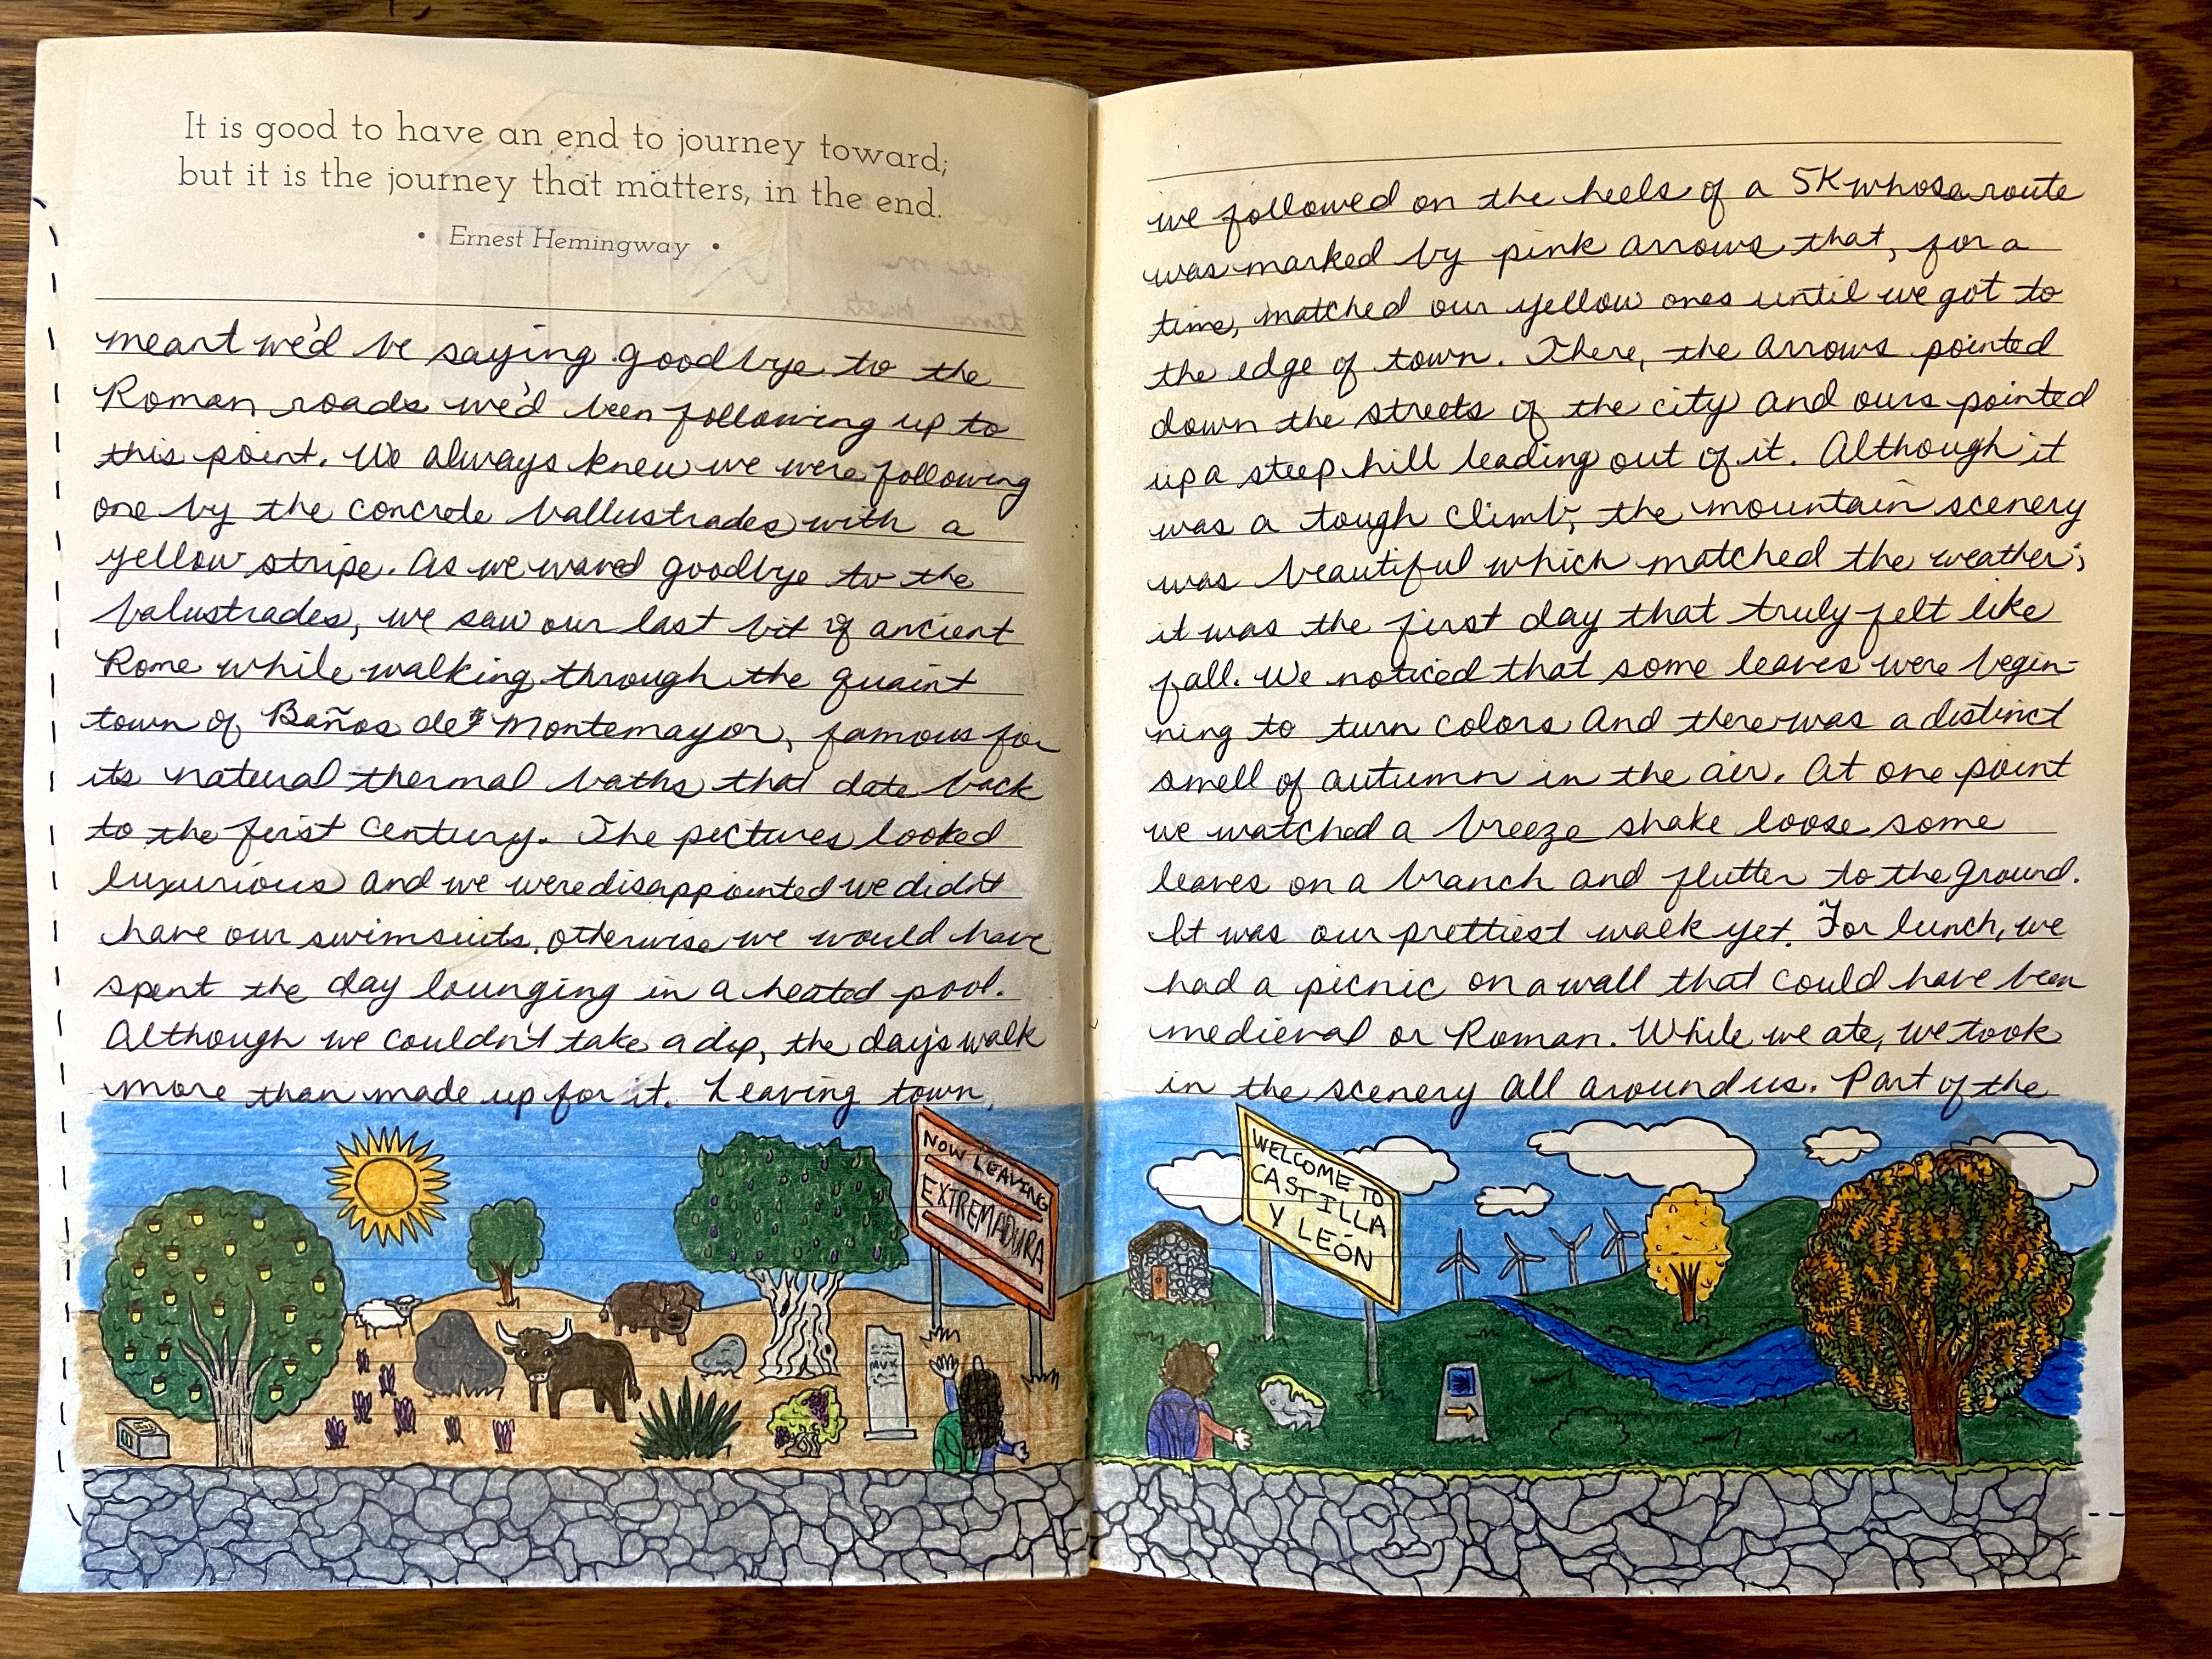 It is good to have an end to journey toward;
but it is the journey that matters, in the end.
• Ernest Hemingway •
meant we'd be saying goodbye to the
Roman roads we'd been following up to
this point. We always knew we were following
one by the concrete ballustrades with a
yellow stripe. As we waved goodbye to the
balustrades, we saw our last bit of ancient
Rome while walking through the quaint
town of Baños de Montemayor, famous for
its natural thermal baths that date back
to the first century. The pictures looked
luxurious and we were disappointed we didn't
have our swimsuits, otherwise we would have
spent the day lounging in a heated pool.
Although we couldn't take a dip, the day's walk
more than made up for it. Leaving town,
NOW LEAVING
EXTREMADURA
we followed on the heels of a 5K whose route
was marked by pink arrows that, for a
time, matched our yellow ones until we got to
the edge of town. There, the arrows pointed
down the streets of the city and ours pointed
up a steep hill leading out of it. Although it
was a tough climb, the mountain scenery
was beautiful which matched the weather;
it was the first day that truly felt like
fall. We noticed that some leaves were begin-
ning to turn colors and there was a distinct
smell of autumn in the air. At one point
we watched a breeze shake loose some
leaves on a branch and flutter to the ground.
It was our prettiest walk yet. For lunch, we
had a picnic on a wall that could have been
medieval or Roman. While we ate, we took
in the scenery all around us. Part of the
WELCOME TO
CASTILLA
Y LEÓN